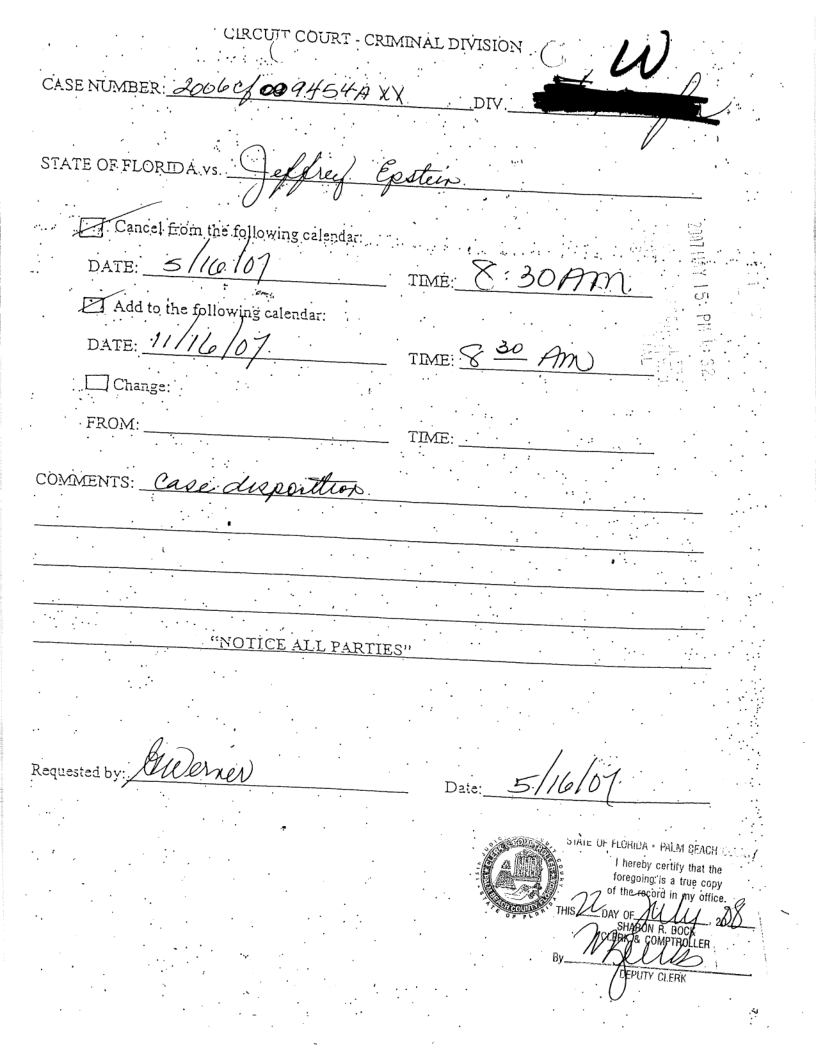 CIRCUIT COURT - CRIMINAL DIVISION
W
CASE NUMBER: 2006cf009454A XX DIV.
STATE OF FLORIDA vs. Jeffrey Epstein
Cancel from the following calendar:
DATE: 5/16/07 TIME: 8:30 AM
Add to the following calendar:
DATE: 11/16/07 TIME: 8 30 AM
Change:
FROM: TIME:
COMMENTS: Case disposition
"NOTICE ALL PARTIES"
Requested by: Werner Date: 5/16/07
STATE OF FLORIDA • PALM BEACH
I hereby certify that the
foregoing is a true copy
of the record in my office.
THIS 22 DAY OF July, 2008
SHARON R. BOCK
CLERK & COMPTROLLER
By
DEPUTY CLERK